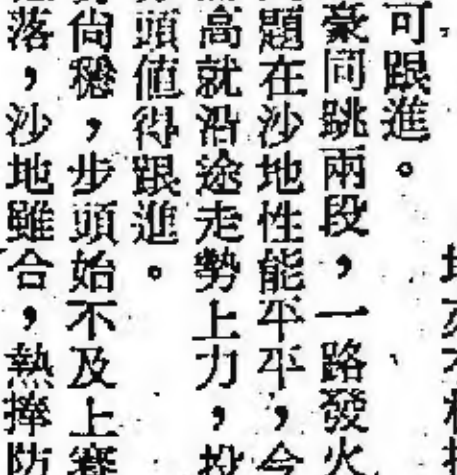 可跟進。
豪同跳兩段，一路發火
題在沙地性能平平，今
高就沿途走勢上力，投
頭値得跟進。
尚穩，步頭始不及上賽
落，沙地雖合，熱摔防